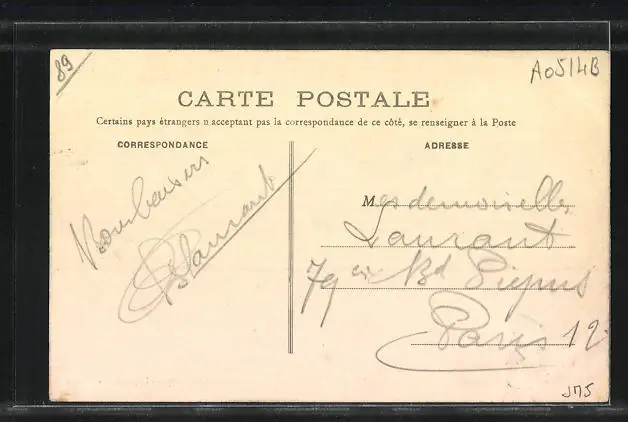 89
A0514B
CARTE POSTALE
Certains pays étrangers n acceptant pas la correspondance de ce côté, se renseigner à la Poste
CORRESPONDANCE
ADRESSE
Bons baisers
Laurant
Mesdemoiselles
Laurant
79 Bd Picpus
Paris 12